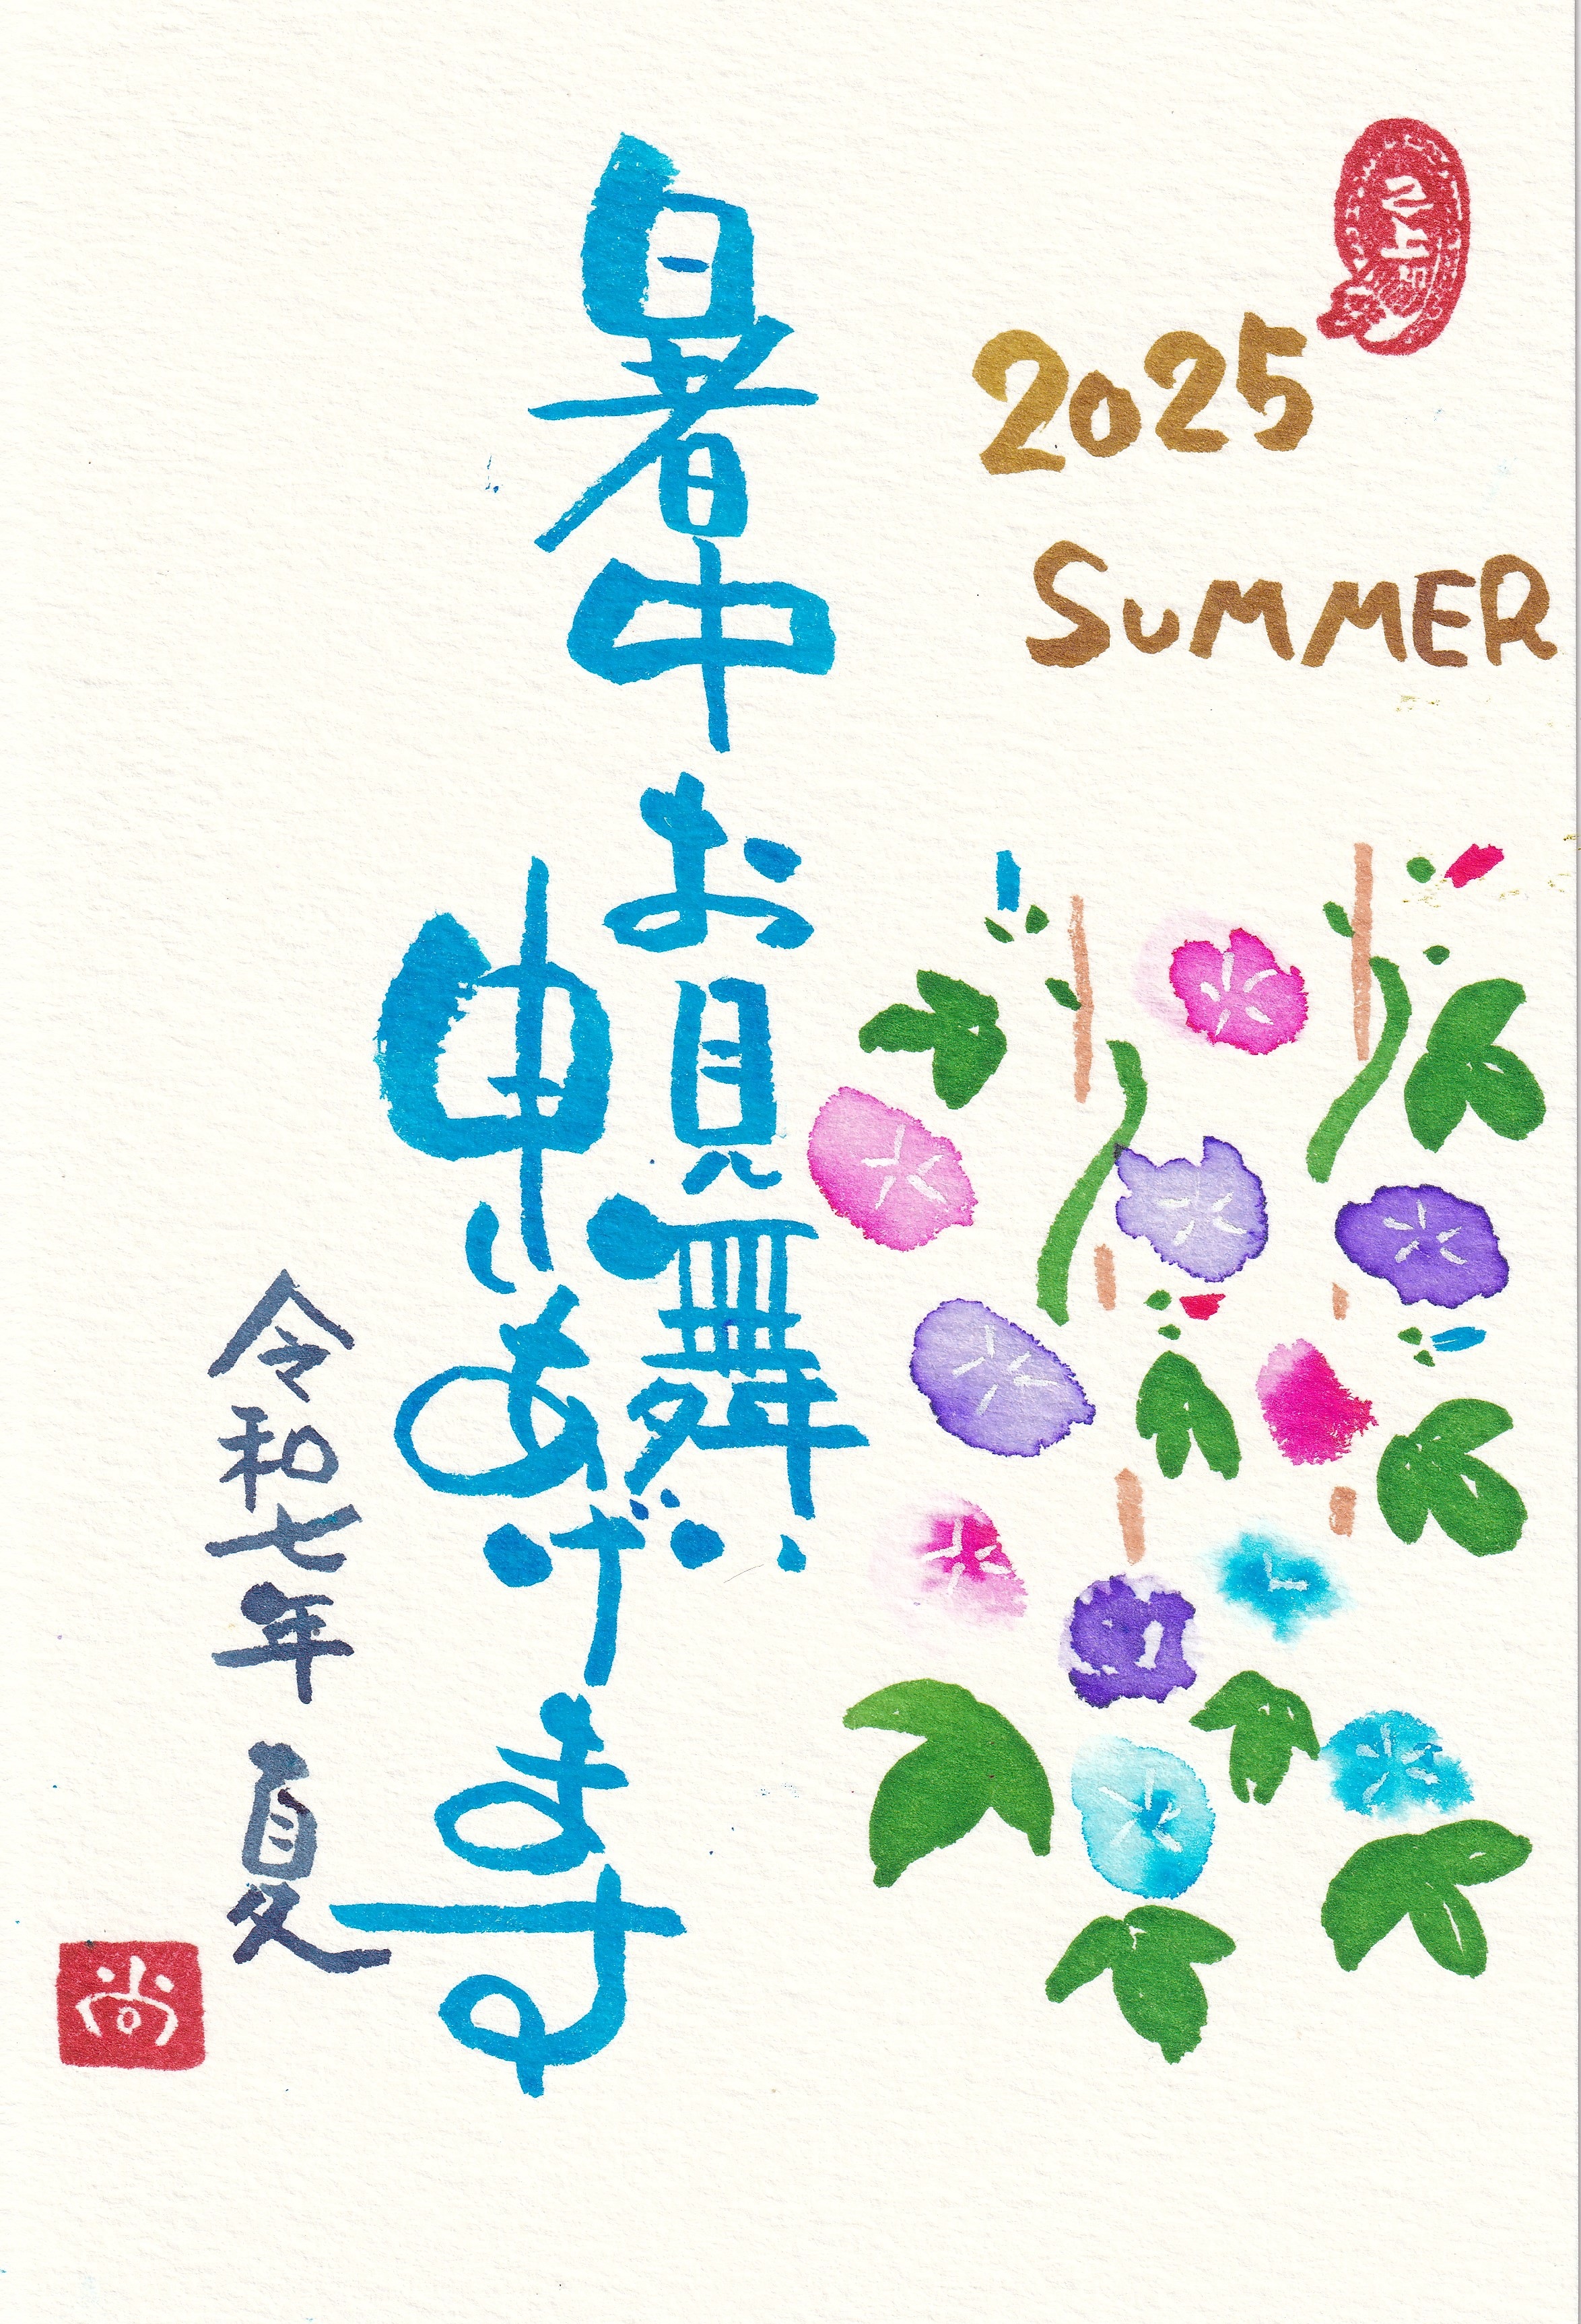 2025
SUMMER
暑中お見舞い
申しあげます
令和七年 夏
尚